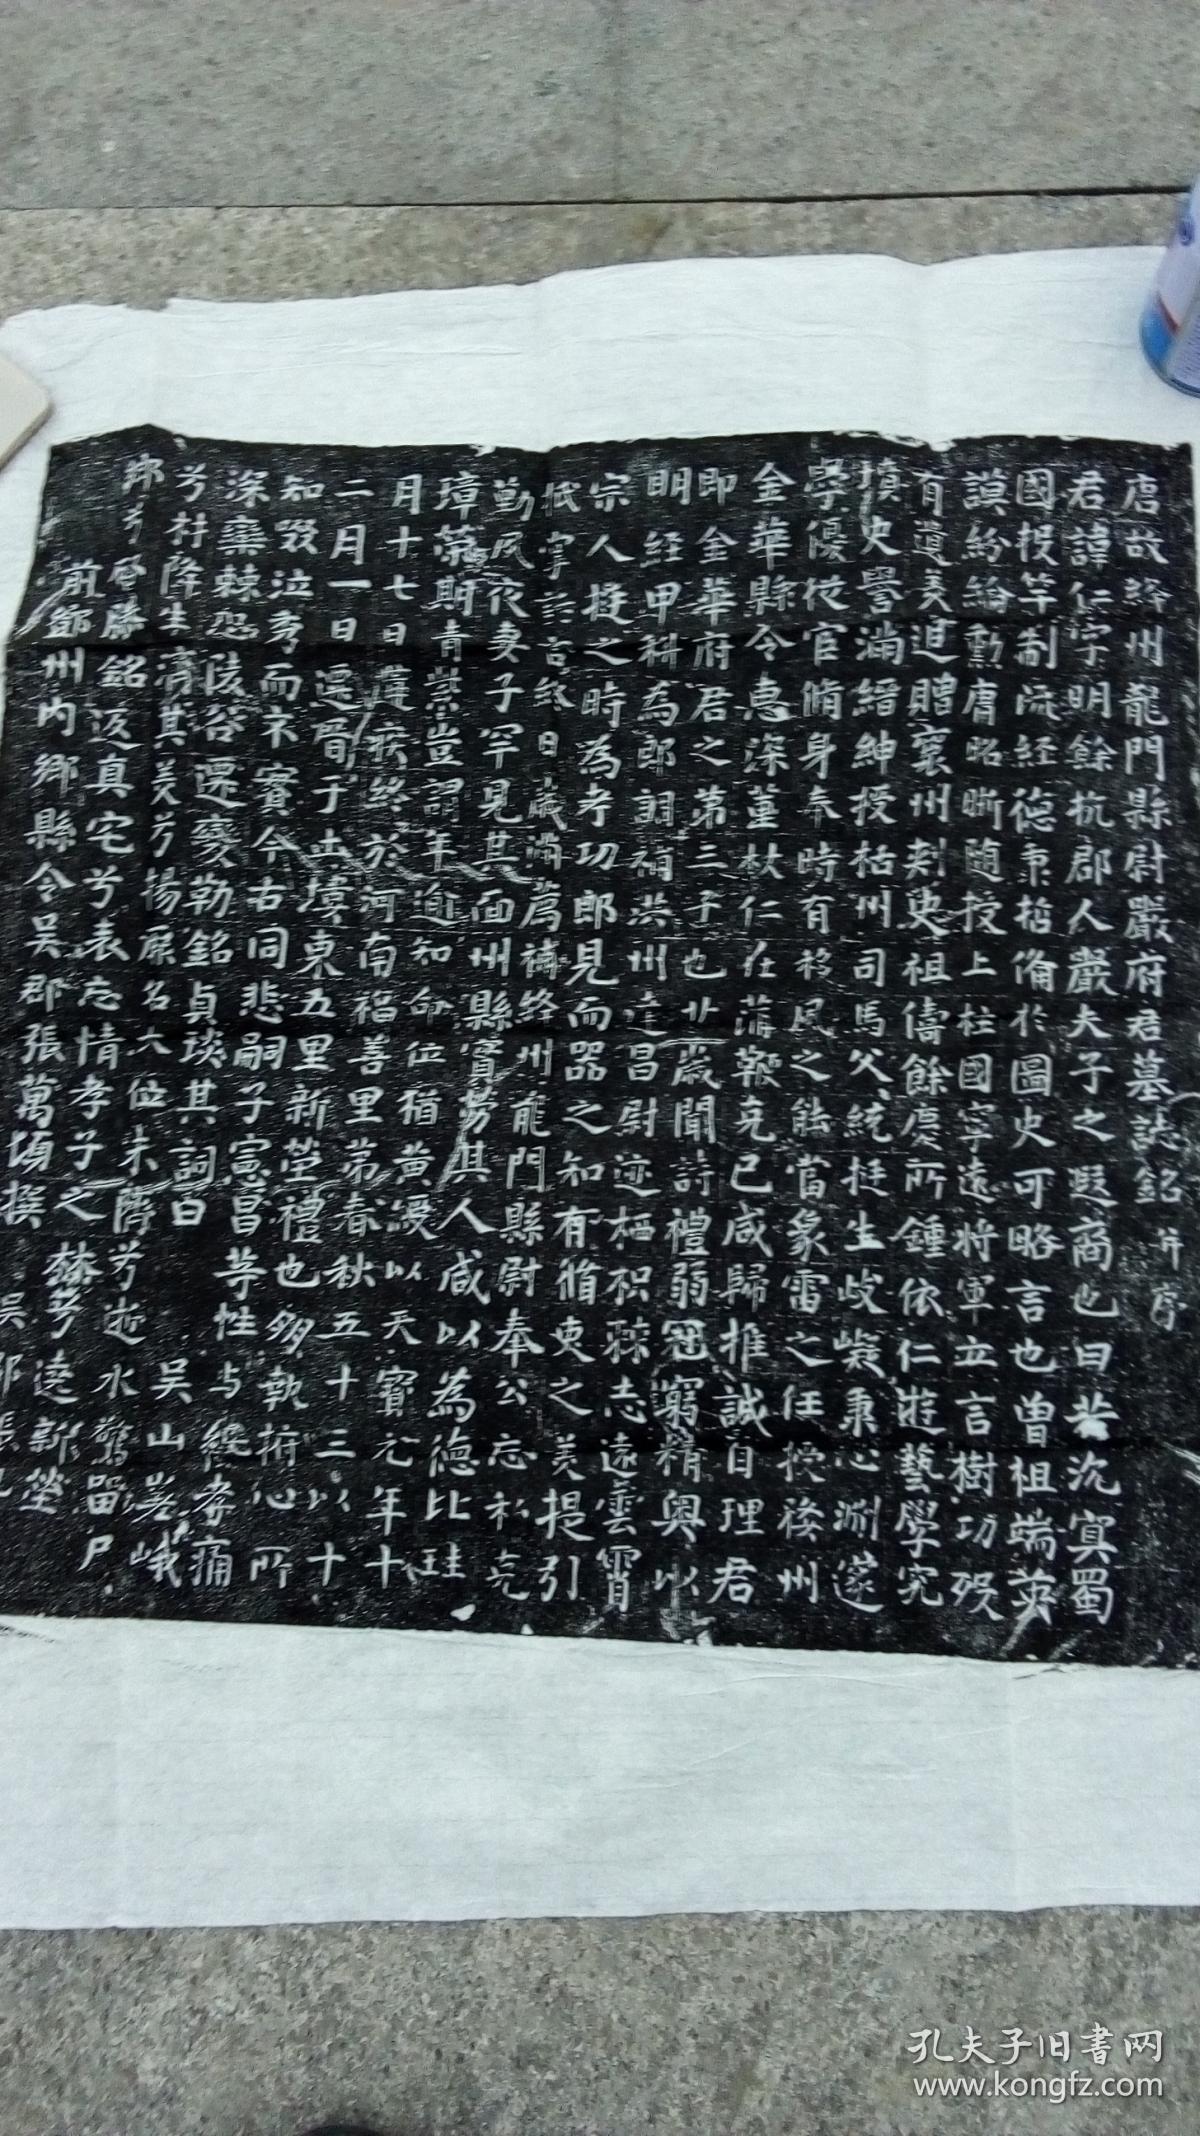 唐故絳州龍門縣尉嚴府君墓誌銘并序
君諱仁字明餘杭郡人嚴夫子之遐裔也曰若沉冥蜀
國投竿制流經德秉哲脩於圖史可略言也曾祖端英
謨紛綸勳庸昭晰隨授上柱國寧遠將軍立言樹功歿
有遺美追贈襄州刺史祖儔餘慶所鍾依仁遊藝學究
墳史譽滿縉紳授括州司馬父統挺生岐嶷秉心淵邃
學優從官脩身奉時有移風之能當象雷之任授婺州
金華縣令惠深堇杖仁在蒲鞭克己咸歸推誠自理君
即金華府君之第三子也廿歲聞詩禮弱冠窮精奧以
明經甲科為郎調補洪州達昌尉迹栖枳棘志遠雲霄
宗人挺之時為考功郎見而器之知有脩吏之美提引
祇 言終日歲滿薦補絳州龍門縣尉奉公忘私克
勤夙夜妻子罕見其面州縣實勞其人咸以為德比珪
璋榮期青紫豈謂年逾知命位猶黃綬以天寶元年十
月十七日遘疾終於河南福善里第春秋五十三以十
二月一日還厝于土 東五里新塋禮也夘執 心所
知歿泣考而不賓今古同悲嗣子憲昌等性与經孝痛
深欒棘恐陵谷還變勒銘貞琰其詞曰 吳山峩峨
兮材降生濟其美兮揚厥名大位未躋兮逝水驚留尸
鄉兮啓滕銘返真宅兮表忘情孝子之 兮遶新塋
前鄧州內鄉縣令吳郡張萬頃撰 吳郡張
孔夫子旧书网
www.kongfz.com